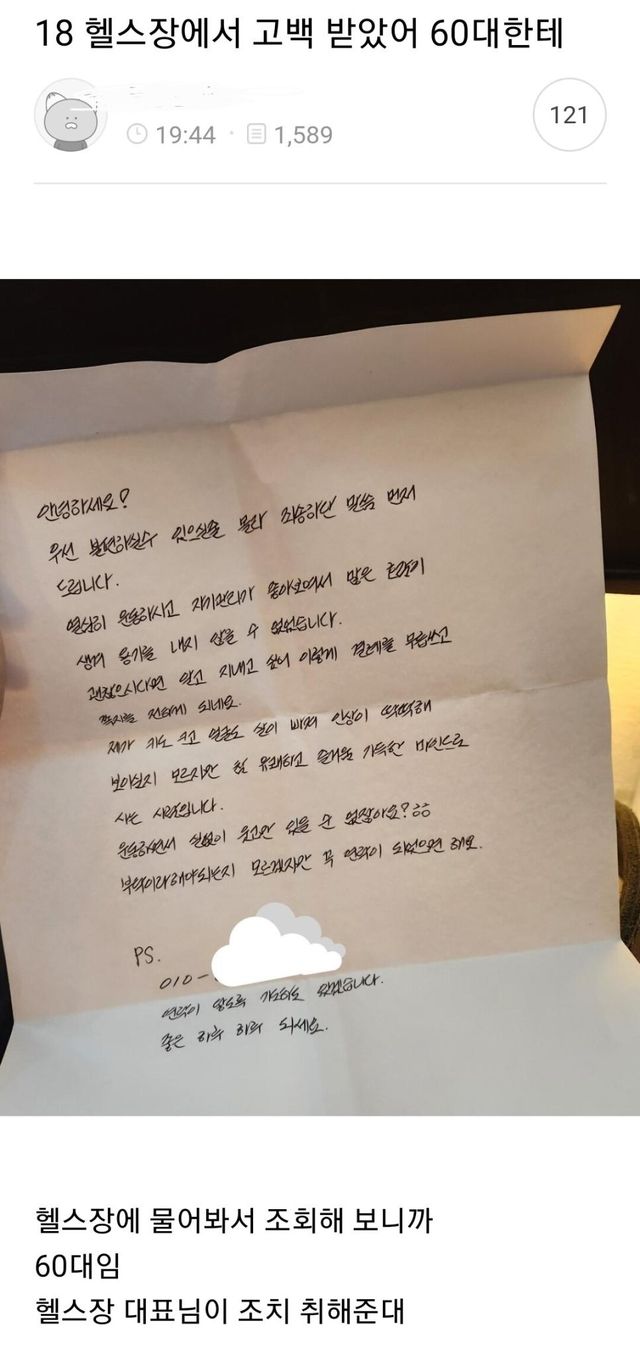 18 헬스장에서 고백 받았어 60대한테
19:44 · 1,589
121
안녕하세요?
우선 불편하실수 있으실줄 몰라 죄송하단 말씀 먼저
드립니다.
열심히 운동하시고 자기관리가 좋아보여서 많은 호감이
생겨 용기를 내지 않을 수 없었습니다.
괜찮으시다면 알고 지내고 싶어 이렇게 결례를 무릅쓰고
쪽지를 전하게 되네요.
제가 키도 크고 얼굴도 살이 빠져 인상이 딱딱해
보이실지 모르지만 참 유쾌하고 즐거움 가득한 마인드로
사는 사람입니다.
운동하면서 실없이 웃고만 있을 순 없잖아요?
부탁이라해야되는지 모르겠지만 꼭 연락이 되었으면 해요.
PS.
010-
연락이 않도록 기도하고 있겠습니다.
좋은 하루 하루 되세요.
헬스장에 물어봐서 조회해 보니까
60대임
헬스장 대표님이 조치 취해준대